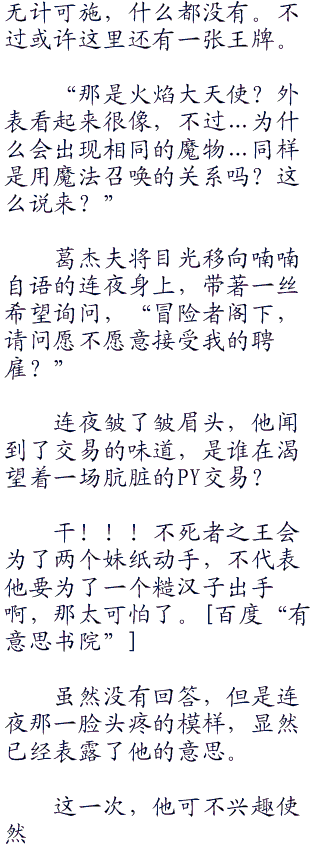 无计可施，什么都没有。不
过或许这里还有一张王牌。
“那是火焰大天使？外
表看起来很像，不过…为什
么会出现相同的魔物…同样
是用魔法召唤的关系吗？这
么说来？”
葛杰夫将目光移向喃喃
自语的连夜身上，带著一丝
希望询问，“冒险者阁下，
请问愿不愿意接受我的聘
雇？”
连夜皱了皱眉头，他闻
到了交易的味道，是谁在渴
望着一场肮脏的PY交易？
干！！！不死者之王会
为了两个妹纸动手，不代表
他要为了一个糙汉子出手
啊，那太可怕了。[百度“有
意思书院”]
虽然没有回答，但是连
夜那一脸头疼的模样，显然
已经表露了他的意思。
这一次，他可不兴趣使
然